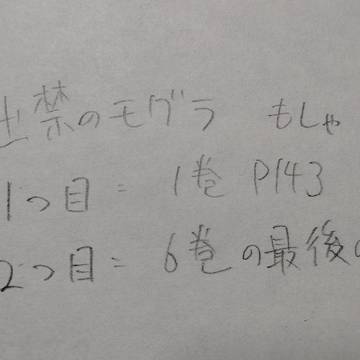 出禁のモグラ もしゃ
1つ目= 1巻 P143
2つ目= 6巻の最後の